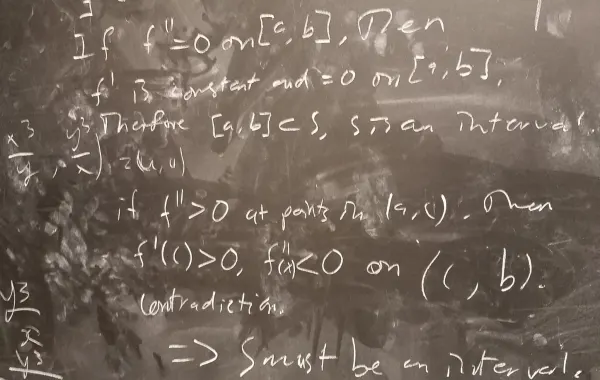 If f''=0 on [a,b], Then
f' is constant and =0 on [a,b],
Therefore [a,b] ⊂ S, S is an interval.
x³/y, y³/x),
if f''>0 at points in (a,c). Then
f'(c)>0, f''(x)<0 on (c,b).
Contradiction.
y3
x
y3
=> S must be an interval.